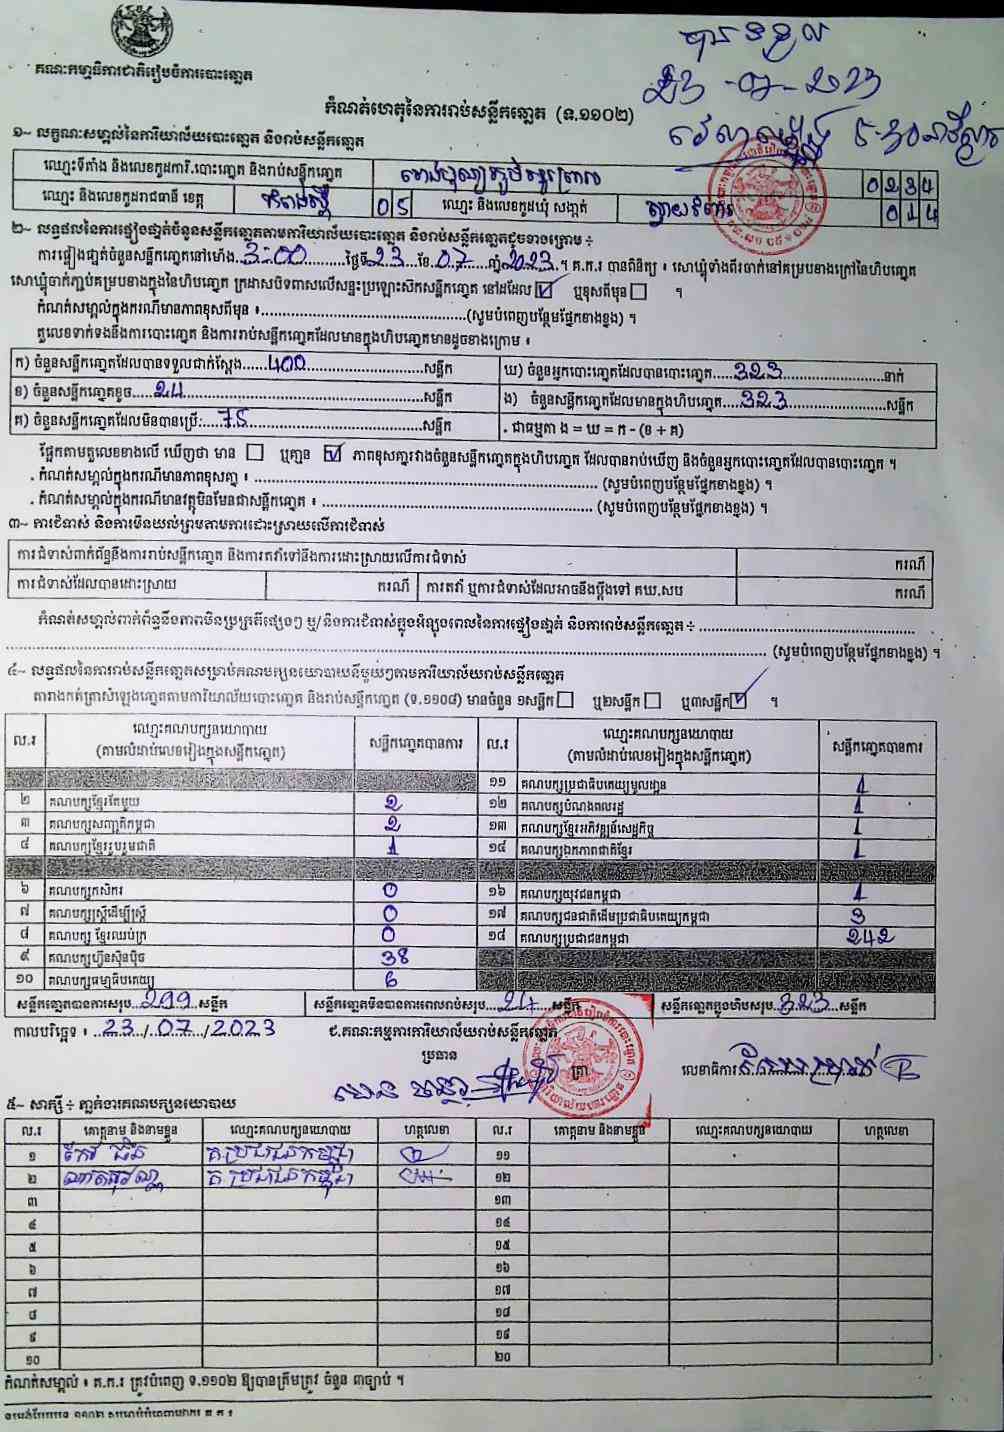 បានទទួល
23-07-2023
វេលាម៉ោង ៥-30នាទីល្ងាច
គណៈកម្មាធិការជាតិរៀបចំការបោះឆ្នោត
កំណត់ហេតុនៃការរាប់សន្លឹកឆ្នោត (ទ.១១០២)
១~ លក្ខណៈសម្គាល់នៃការិយាល័យបោះឆ្នោត និងរាប់សន្លឹកឆ្នោត
ឈ្មោះទីតាំង និងលេខកូដការិ.បោះឆ្នោត និងរាប់សន្លឹកឆ្នោត 0234
ឈ្មោះ និងលេខកូដរាជធានី ខេត្ត កំពង់ស្ពឺ 05 ឈ្មោះ និងលេខកូដឃុំ សង្កាត់ 014
២~ លទ្ធផលនៃការផ្ទៀងផ្ទាត់ចំនួនសន្លឹកឆ្នោតតាមការិយាល័យបោះឆ្នោត និងរាប់សន្លឹកឆ្នោតដូចខាងក្រោម ÷
ការផ្ទៀងផ្ទាត់ចំនួនសន្លឹកឆ្នោតនៅម៉ោង 3:00 ថ្ងៃទី 23 ខែ 07 ឆ្នាំ 2023 ។ គ.ក.រ បានពិនិត្យ ៖ សោឃ្មុំទាំងពីរចាក់នៅគម្របខាងក្រៅនៃហិបឆ្នោត
សោឃ្មុំចាក់ភ្ជាប់គម្របខាងក្នុងនៃហិបឆ្នោត ក្រដាសបិទពាសលើសន្ទះប្រឡោះសឹកសន្លឹកឆ្នោត នៅដដែល ☑ ឬខុសពីមុន ☐ ។
កំណត់សម្គាល់ក្នុងករណីមានភាពខុសពីមុន ៖ (សូមបំពេញបន្ថែមផ្នែកខាងខ្នង) ។
តួលេខទាក់ទងនឹងការបោះឆ្នោត និងការរាប់សន្លឹកឆ្នោតដែលមានក្នុងហិបឆ្នោតមានដូចខាងក្រោម ៖
ក) ចំនួនសន្លឹកឆ្នោតដែលបានទទួលជាក់ស្តែង 400 សន្លឹក ឃ) ចំនួនអ្នកបោះឆ្នោតដែលបានបោះឆ្នោត 323 នាក់
ខ) ចំនួនសន្លឹកឆ្នោតខូច 24 សន្លឹក ង) ចំនួនសន្លឹកឆ្នោតដែលមានក្នុងហិបឆ្នោត 323 សន្លឹក
គ) ចំនួនសន្លឹកឆ្នោតដែលមិនបានប្រើ: 75 សន្លឹក . ជាធម្មតា ង = ឃ = ក - (ខ + គ)
ផ្អែកតាមតួលេខខាងលើ ឃើញថា មាន ☐ ឬគ្មាន ☑ ភាពខុសគ្នារវាងចំនួនសន្លឹកឆ្នោតក្នុងហិបឆ្នោត ដែលបានរាប់ឃើញ និងចំនួនអ្នកបោះឆ្នោតដែលបានបោះឆ្នោត ។
. កំណត់សម្គាល់ក្នុងករណីមានភាពខុសគ្នា ៖ (សូមបំពេញបន្ថែមផ្នែកខាងខ្នង) ។
. កំណត់សម្គាល់ក្នុងករណីមានវត្ថុមិនមែនជាសន្លឹកឆ្នោត ៖ (សូមបំពេញបន្ថែមផ្នែកខាងខ្នង) ។
៣~ ការជំទាស់ និងការមិនយល់ព្រមតាមការដោះស្រាយលើការជំទាស់
ការជំទាស់ពាក់ព័ន្ធនឹងការរាប់សន្លឹកឆ្នោត និងការតវ៉ាទៅនឹងការដោះស្រាយលើការជំទាស់ ករណី
ការជំទាស់ដែលបានដោះស្រាយ ករណី ការតវ៉ា ឬការជំទាស់ដែលអាចនឹងប្តឹងទៅ គឃ.សប ករណី
កំណត់សម្គាល់ពាក់ព័ន្ធនឹងភាពមិនប្រក្រតីផ្សេងៗ ឬ/និងការជំទាស់ក្នុងអំឡុងពេលនៃការផ្ទៀងផ្ទាត់ និងការរាប់សន្លឹកឆ្នោត ÷
(សូមបំពេញបន្ថែមផ្នែកខាងខ្នង) ។
៤~ លទ្ធផលនៃការរាប់សន្លឹកឆ្នោតសម្រាប់គណបក្សនយោបាយនីមួយៗតាមការិយាល័យរាប់សន្លឹកឆ្នោត
តារាងកត់ត្រាសំឡេងឆ្នោតតាមការិយាល័យបោះឆ្នោត និងរាប់សន្លឹកឆ្នោត (ទ.១១០៨) មានចំនួន ១សន្លឹក ☐ ឬ២សន្លឹក ☐ ឬ៣សន្លឹក ☑ ។
ល.រ ឈ្មោះគណបក្សនយោបាយ (តាមលំដាប់លេខរៀងក្នុងសន្លឹកឆ្នោត) សន្លឹកឆ្នោតបានការ ល.រ ឈ្មោះគណបក្សនយោបាយ (តាមលំដាប់លេខរៀងក្នុងសន្លឹកឆ្នោត) សន្លឹកឆ្នោតបានការ
១១ គណបក្សប្រជាធិបតេយ្យមូលដ្ឋាន 1
២ គណបក្សខ្មែរតែមួយ 2 ១២ គណបក្សបំណងពលរដ្ឋ 1
៣ គណបក្សសញ្ជាតិកម្ពុជា 2 ១៣ គណបក្សខ្មែរអភិវឌ្ឍន៍សេដ្ឋកិច្ច 1
៤ គណបក្សខ្មែររួបរួមជាតិ 1 ១៤ គណបក្សឯកភាពជាតិខ្មែរ 1
៦ គណបក្សកសិករ 0 ១៦ គណបក្សយុវជនកម្ពុជា 1
៧ គណបក្សស្ត្រីដើម្បីស្ត្រី 0 ១៧ គណបក្សជនជាតិដើមប្រជាធិបតេយ្យកម្ពុជា 3
៨ គណបក្ស ខ្មែរឈប់ក្រ 0 ១៨ គណបក្សប្រជាជនកម្ពុជា 242
៩ គណបក្សហ៊្វុនស៊ិនប៉ិច 38
១០ គណបក្សធម្មាធិបតេយ្យ 6
សន្លឹកឆ្នោតបានការសរុប 299 សន្លឹក សន្លឹកឆ្នោតមិនបានការពេលរាប់សរុប 24 សន្លឹក សន្លឹកឆ្នោតក្នុងហិបសរុប 323 សន្លឹក
កាលបរិច្ឆេទ ៖ 23/07/2023 ជ.គណៈកម្មការការិយាល័យរាប់សន្លឹកឆ្នោត
ប្រធាន
ត្រា លេខាធិការ
៥~ សាក្សី ÷ ភ្នាក់ងារគណបក្សនយោបាយ
ល.រ គោត្តនាម និងនាមខ្លួន ឈ្មោះគណបក្សនយោបាយ ហត្ថលេខា ល.រ គោត្តនាម និងនាមខ្លួន ឈ្មោះគណបក្សនយោបាយ ហត្ថលេខា
១ គ.ប្រជាជនកម្ពុជា ១១
២ គ.ប្រជាជនកម្ពុជា ១២
៣ ១៣
៤ ១៤
៥ ១៥
៦ ១៦
៧ ១៧
៨ ១៨
៩ ១៩
១០ ២០
កំណត់សម្គាល់ ៖ គ.ក.រ ត្រូវបំពេញ ទ.១១០២ ឱ្យបានត្រឹមត្រូវ ចំនួន ៣ច្បាប់ ។